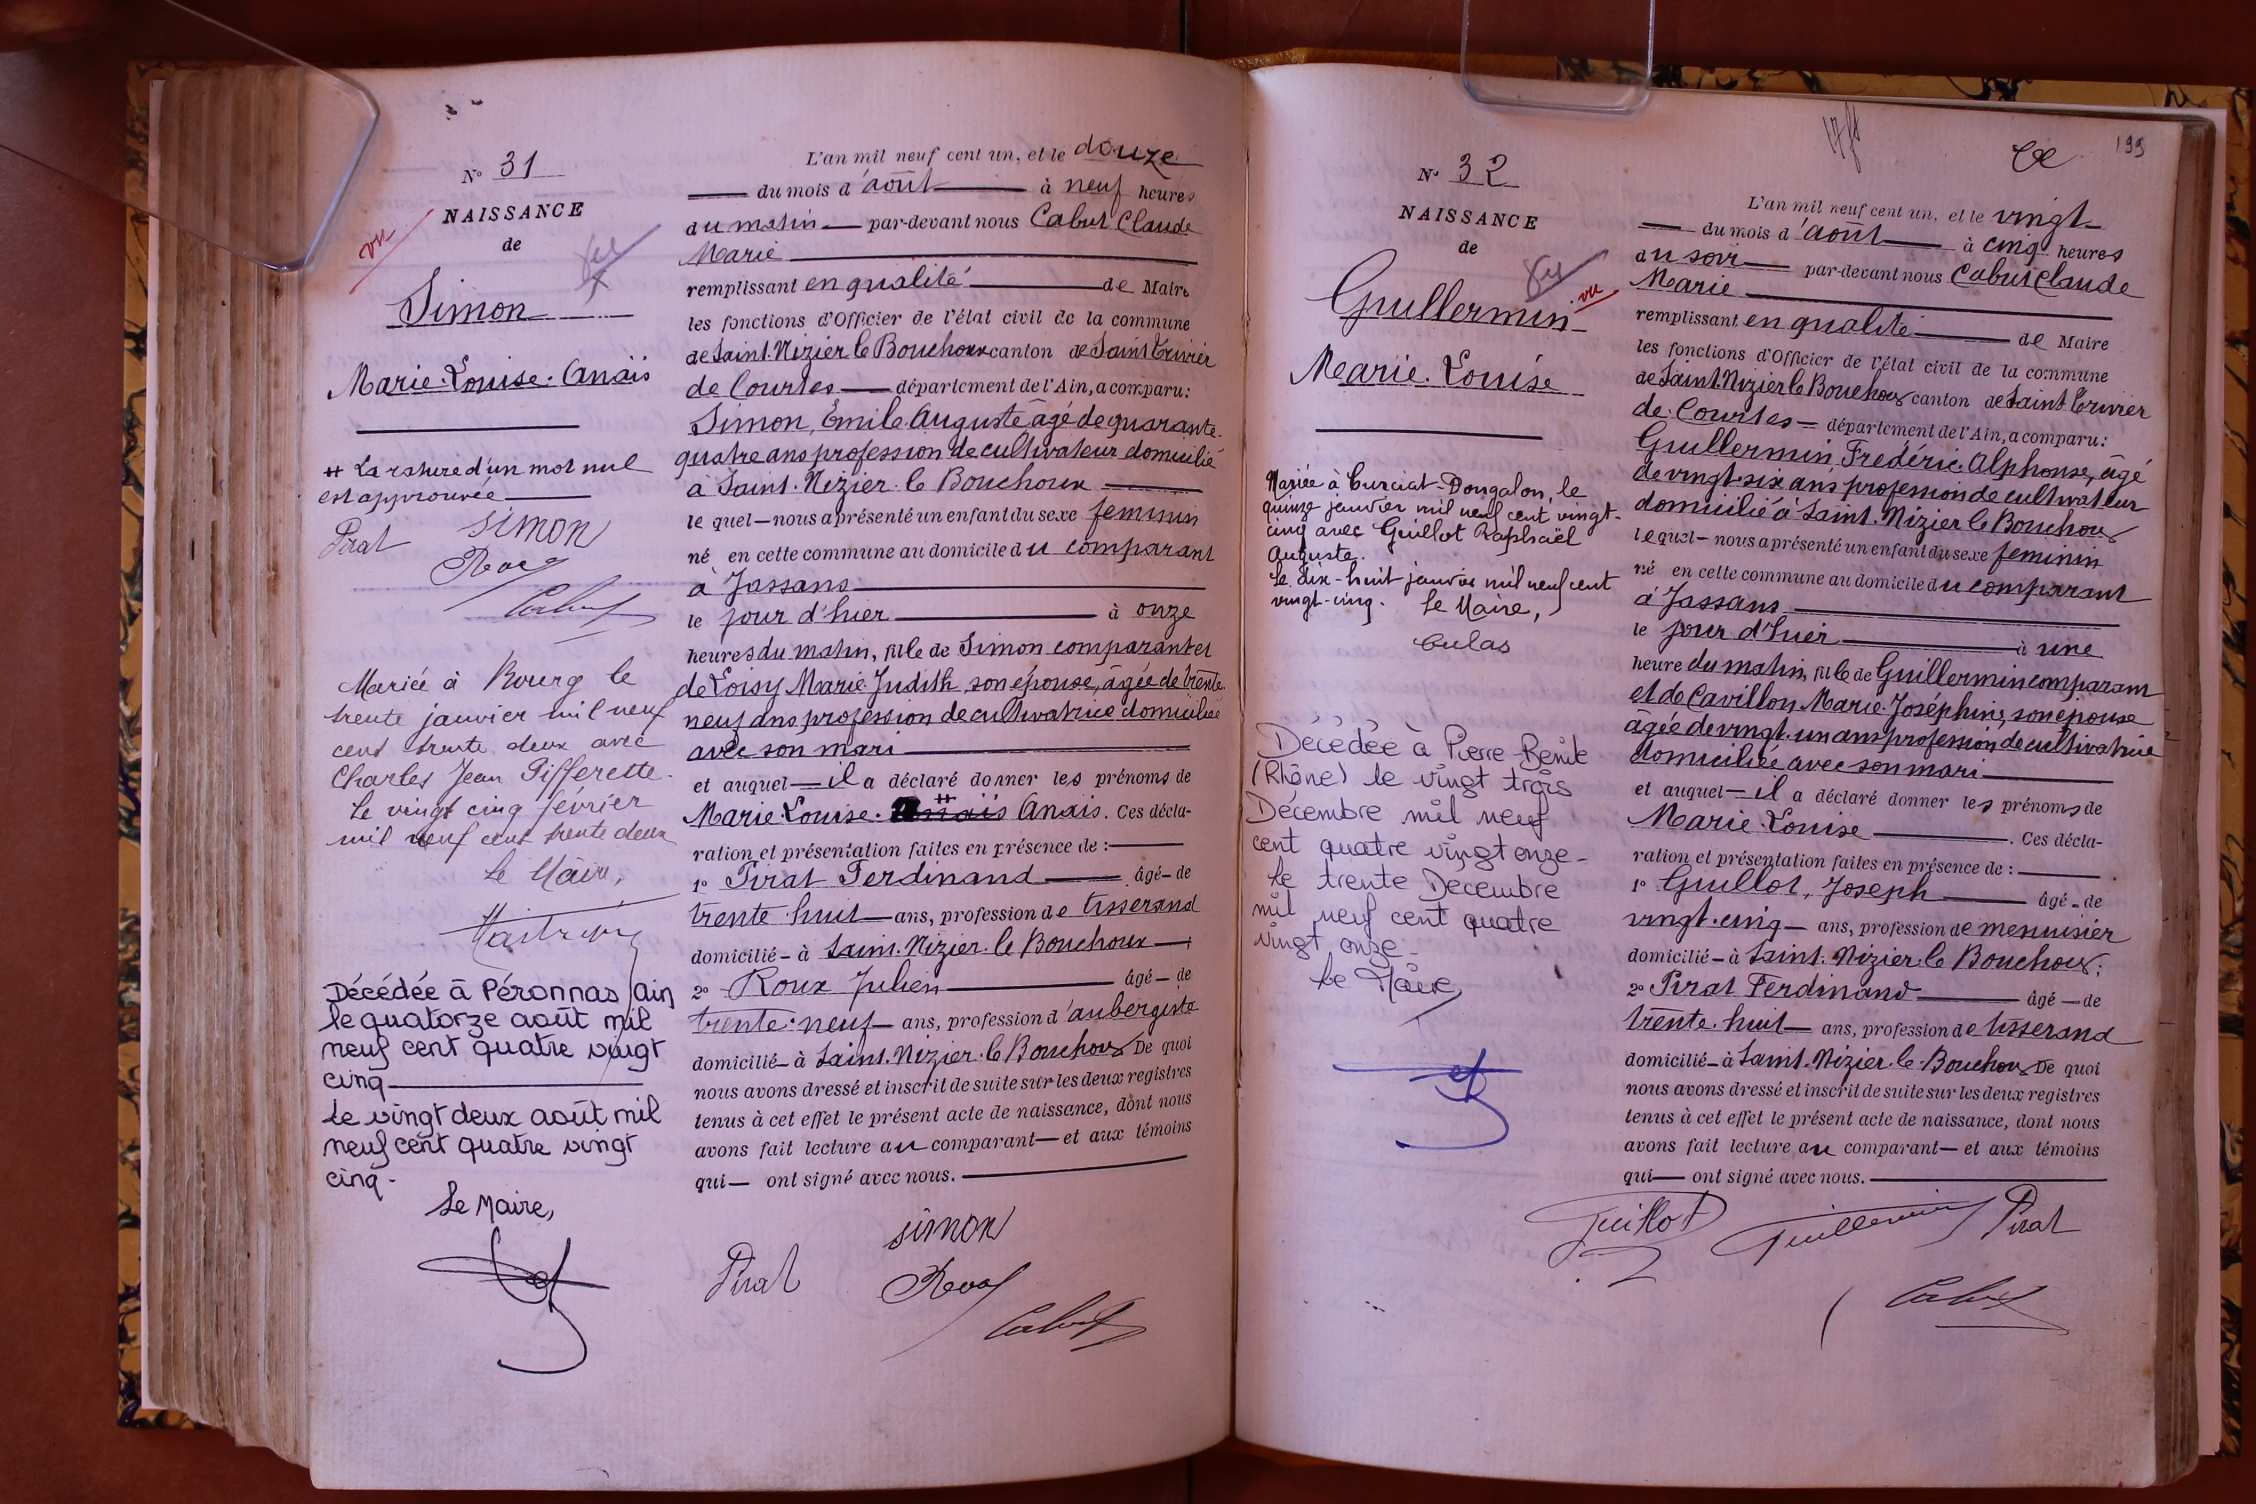 N° 31
NAISSANCE
de
vu
Simon
Marie-Louise-Anaïs
++ La rature d'un mot nul
est approuvée
Pirat Simon
Mariée à Bourg le
trente janvier mil neuf
cent trente deux avec
Charles Jean Pifferette.
Le vingt cinq février
mil neuf cent trente deux
Le Maire,
Décédée à Péronnas Ain
le quatorze août mil
neuf cent quatre vingt
cinq
Le vingt deux août mil
neuf cent quatre vingt
cinq -
Le Maire,
L'an mil neuf cent un, et le douze
du mois d'août à neuf heures
du matin par-devant nous Cabut Claude
Marie
remplissant en qualité de Maire
les fonctions d'Officier de l'état civil de la commune
de Saint-Nizier le Bouchoux canton de Saint Trivier
de Courtes département de l'Ain, a comparu:
Simon, Emile Auguste âgé de quarante-
quatre ans profession de cultivateur domicilié
à Saint-Nizier-le Bouchoux
le quel nous a présenté un enfant du sexe feminin
né en cette commune au domicile du comparant
à Jassans
le jour d'hier à onze
heures du matin, fille de Simon comparant et
de Loisy Marie-Judith, son épouse, âgée de trente-
neuf ans profession de cultivatrice domiciliée
avec son mari
et auquel il a déclaré donner les prénoms de
Marie-Louise- ++ Anaïs. Ces décla-
ration et présentation faites en présence de:
1° Pirat Ferdinand âgé de
trente-huit ans, profession de tisserand
domicilié à Saint-Nizier-le Bouchoux
2° Roux Julien âgé de
trente-neuf ans, profession d'aubergiste
domicilié à Saint-Nizier-le Bouchoux De quoi
nous avons dressé et inscrit de suite sur les deux registres
tenus à cet effet le présent acte de naissance, dont nous
avons fait lecture au comparant et aux témoins
qui ont signé avec nous.
Simon
Pirat
Cabut
199
N° 32
NAISSANCE
de
vu
Guillermin
Marie-Louise
Mariée à Curciat-Dongalon, le
quinze janvier mil neuf cent vingt-
cinq avec Guillot Raphaël
Auguste.
Le dix-huit janvier mil neuf cent
vingt-cinq. Le Maire,
Culas
Décédée à Pierre-Bénite
(Rhône) le vingt trois
Décembre mil neuf
cent quatre vingt onze -
Le trente Décembre
mil neuf cent quatre
vingt onze -
Le Maire,
L'an mil neuf cent un, et le vingt
du mois d'août à cinq heures
du soir par-devant nous Cabut Claude
Marie
remplissant en qualité de Maire
les fonctions d'Officier de l'état civil de la commune
de Saint-Nizier le Bouchoux canton de Saint Trivier
de Courtes département de l'Ain, a comparu:
Guillermin, Frédéric-Alphonse, âgé
de vingt-six ans profession de cultivateur
domicilié à Saint-Nizier le Bouchoux
lequel nous a présenté un enfant du sexe feminin
né en cette commune au domicile du comparant
à Jassans
le jour d'hier à une
heure du matin, fille de Guillermin comparant
et de Cavillon Marie-Joséphine, son épouse
âgée de vingt-un ans profession de cultivatrice
domiciliée avec son mari
et auquel il a déclaré donner les prénoms de
Marie-Louise. Ces décla-
ration et présentation faites en présence de:
1° Guillot, Joseph âgé de
vingt-cinq ans, profession de menuisier
domicilié à Saint-Nizier-le Bouchoux;
2° Pirat Ferdinand âgé de
trente-huit ans, profession de tisserand
domicilié à Saint-Nizier-le-Bouchoux De quoi
nous avons dressé et inscrit de suite sur les deux registres
tenus à cet effet le présent acte de naissance, dont nous
avons fait lecture au comparant et aux témoins
qui ont signé avec nous.
Guillot Guillermin Pirat
Cabut